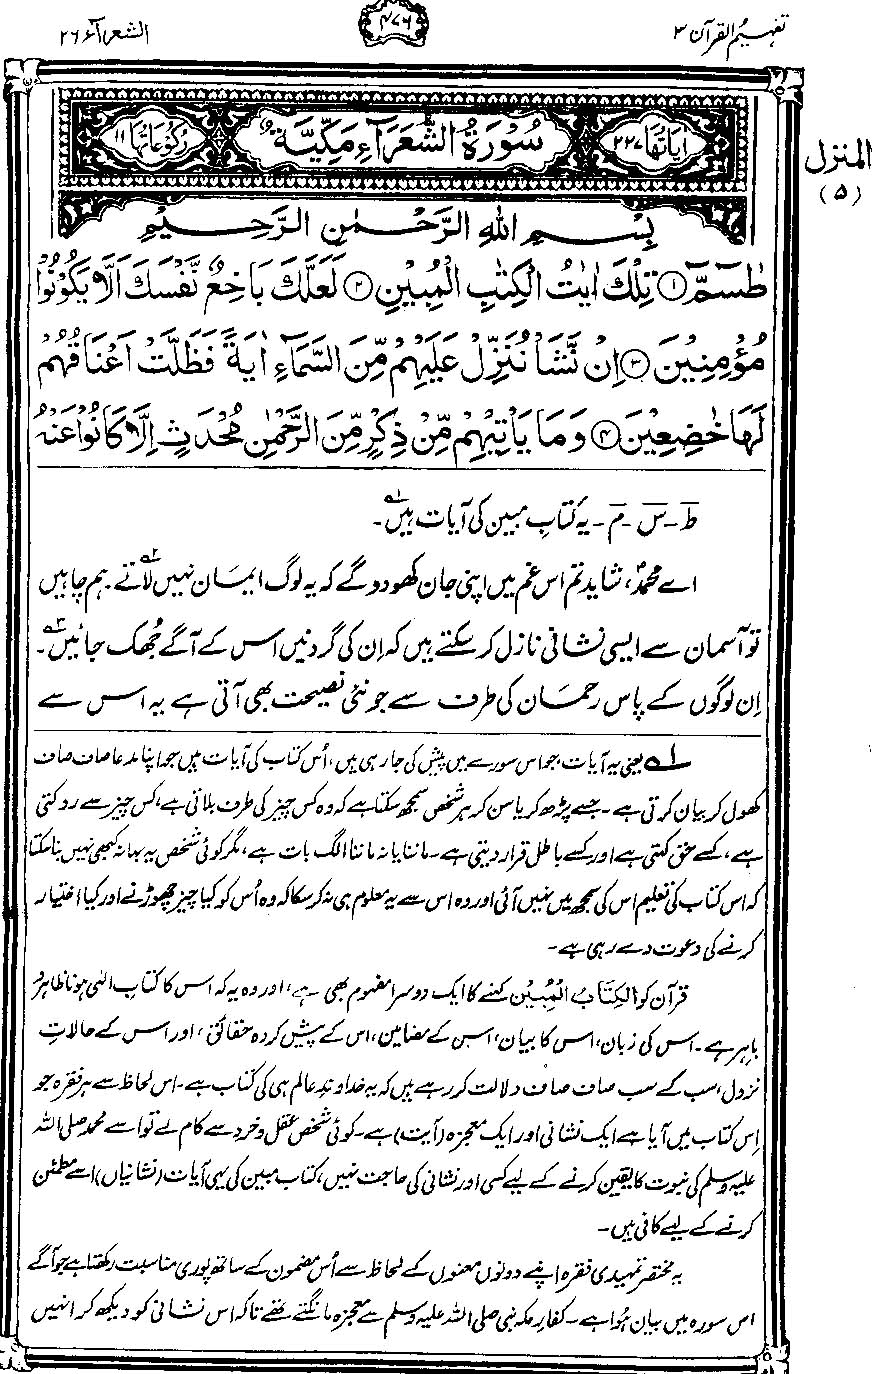 تفہیم القرآن ۳
۴۷۶
الشعرآء ۲۶
اٰیَاتُهَا ۲۲۷
سُوْرَةُ الشُّعَرَآءِ مَكِّيَّةٌ
رُكُوْعَاتُهَا ۱۱
المنزل
(۵)
بِسْمِ اللهِ الرَّحْمٰنِ الرَّحِيْمِ
طٰسٓمّٓ ۱ تِلْكَ اٰيٰتُ الْكِتٰبِ الْمُبِيْنِ ۲ لَعَلَّكَ بَاخِعٌ نَّفْسَكَ اَلَّا يَكُوْنُوْا
مُؤْمِنِيْنَ ۳ اِنْ نَّشَاْ نُنَزِّلْ عَلَيْهِمْ مِّنَ السَّمَآءِ اٰيَةً فَظَلَّتْ اَعْنَاقُهُمْ
لَهَا خٰضِعِيْنَ ۴ وَمَا يَاْتِيْهِمْ مِّنْ ذِكْرٍ مِّنَ الرَّحْمٰنِ مُحْدَثٍ اِلَّا كَانُوْا عَنْهُ
ط۔ س۔ م۔ یہ کتابِ مبین کی آیات ہیں۱؎۔
اے محمدؐ، شاید تم اس غم میں اپنی جان کھو دو گے کہ یہ لوگ ایمان نہیں لاتے۲؎۔ ہم چاہیں
تو آسمان سے ایسی نشانی نازل کر سکتے ہیں کہ اِن کی گردنیں اس کے آگے جُھک جائیں۳؎۔
اِن لوگوں کے پاس رحمان کی طرف سے جو نئی نصیحت بھی آتی ہے یہ اس سے
۱؎ یعنی یہ آیات جو اس سورے میں پیش کی جا رہی ہیں، اُس کتاب کی آیات ہیں جو اپنا مدعا صاف صاف
کھول کر بیان کرتی ہے۔ جسے پڑھ کر یا سن کر ہر شخص سمجھ سکتا ہے کہ وہ کس چیز کی طرف بلاتی ہے، کس چیز سے روکتی
ہے، کسے حق کہتی ہے اور کسے باطل قرار دیتی ہے۔ ماننا یا نہ ماننا الگ بات ہے، مگر کوئی شخص یہ بہانہ کبھی نہیں بنا سکتا
کہ اس کتاب کی تعلیم اس کی سمجھ میں نہیں آئی اور وہ اس سے یہ معلوم ہی نہ کر سکا کہ وہ اُس کو کیا چیز چھوڑنے اور کیا اختیار
کرنے کی دعوت دے رہی ہے۔
قرآن کو الْکِتَابُ الْمُبِیْن کہنے کا ایک دوسرا مفہوم بھی ہے، اور وہ یہ کہ اس کا کتابِ الٰہی ہونا ظاہر و
باہر ہے۔ اس کی زبان، اس کا بیان، اس کے مضامین، اس کے پیش کردہ حقائق، اور اس کے حالاتِ
نزول، سب کے سب صاف صاف دلالت کر رہے ہیں کہ یہ خداوندِ عالم ہی کی کتاب ہے۔ اس لحاظ سے ہر فقرہ جو
اِس کتاب میں آیا ہے ایک نشانی اور ایک معجزہ (آیت) ہے۔ کوئی شخص عقل و خرد سے کام لے تو اسے محمد صلی اللہ
علیہ وسلم کی نبوت کا یقین کرنے کے لیے کسی اور نشانی کی حاجت نہیں، کتاب مبین کی یہی آیات (نشانیاں) اسے مطمئن
کرنے کے لیے کافی ہیں۔
یہ مختصر تمہیدی فقرہ اپنے دونوں معنوں کے لحاظ سے اُس مضمون کے ساتھ پوری مناسبت رکھتا ہے جو آگے
اس سورہ میں بیان ہُوا ہے۔ کفارِ مکہ نبی صلی اللہ علیہ وسلم سے معجزہ مانگتے تھے تاکہ اس نشانی کو دیکھ کر انہیں